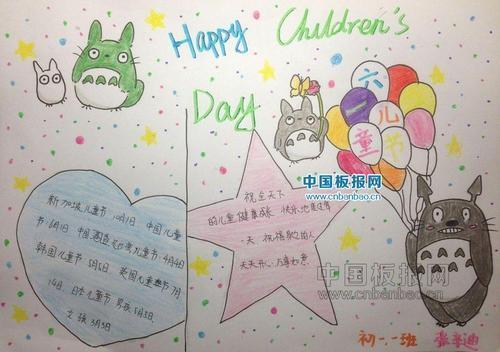 Happy Children's
Day
六一儿童节
中国板报网
www.cnbanbao.cn
新加坡儿童节 10月1日 中国儿童
节:6月1日 中国 儿童节 4月4日
韩国儿童节 5月5日 英国儿童节 7月
14日. 日本儿童节 男孩 5月5日
女孩 3月3日
祝全天下
的儿童健康成长 快乐地度过每
一天 祝福身边的人
天天开心,万事如意.
中国板报网
www.cnbanbao.cn
初一·一班